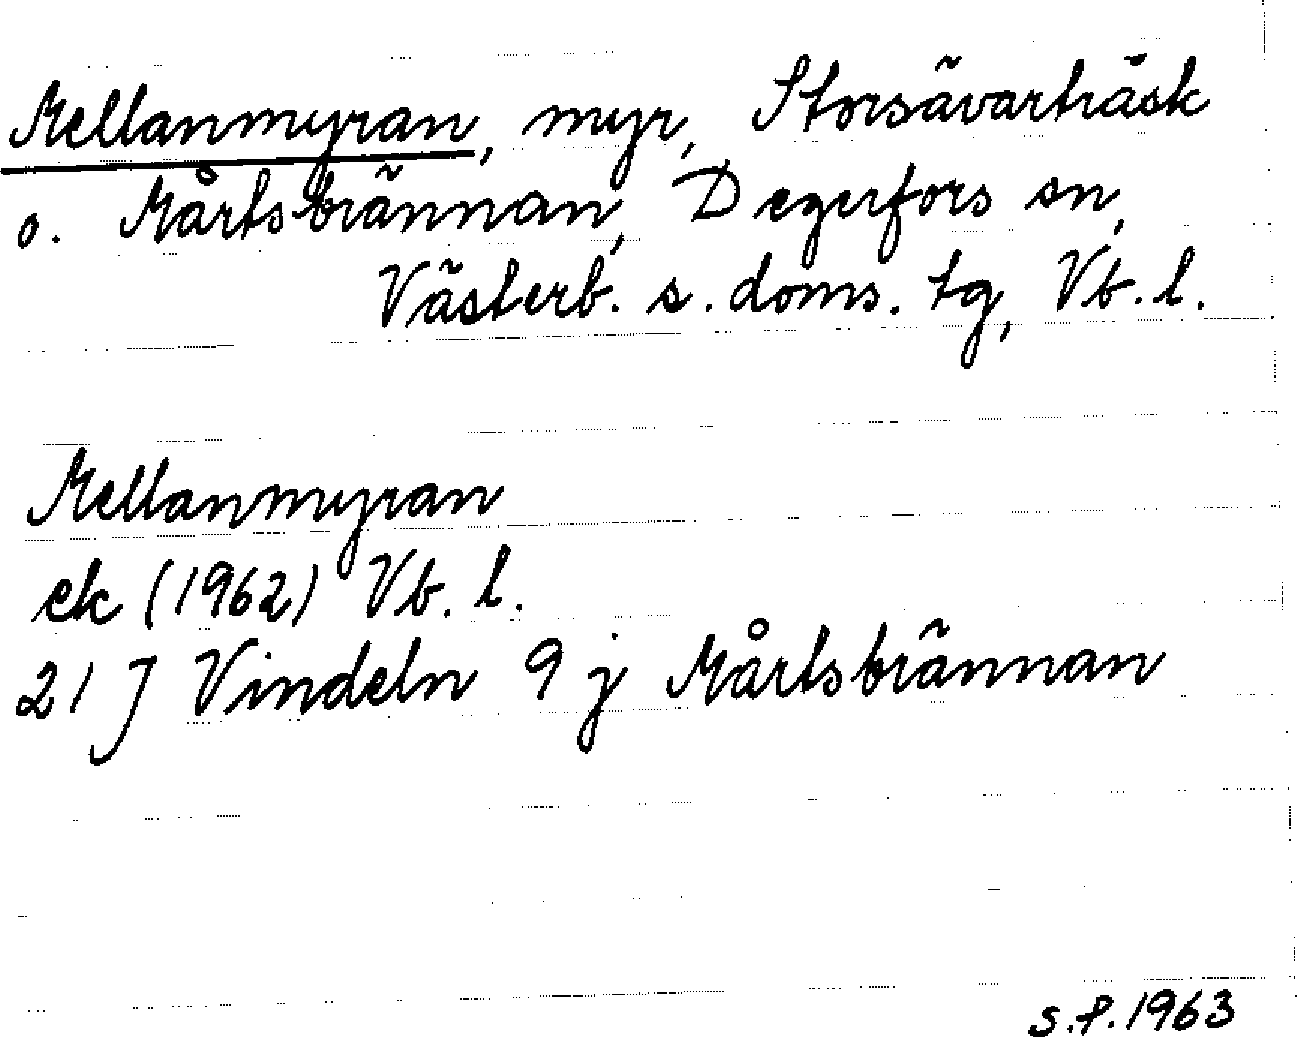 Mellanmyran, myr, Storsävarträsk
o. Mårtsbrännan, Degerfors sn,
Västerb. s. doms. tg, Vb. l.
Mellanmyran
ek (1962) Vb. l.
21 J Vindeln 9 j Mårtsbrännan
s.f. 1963